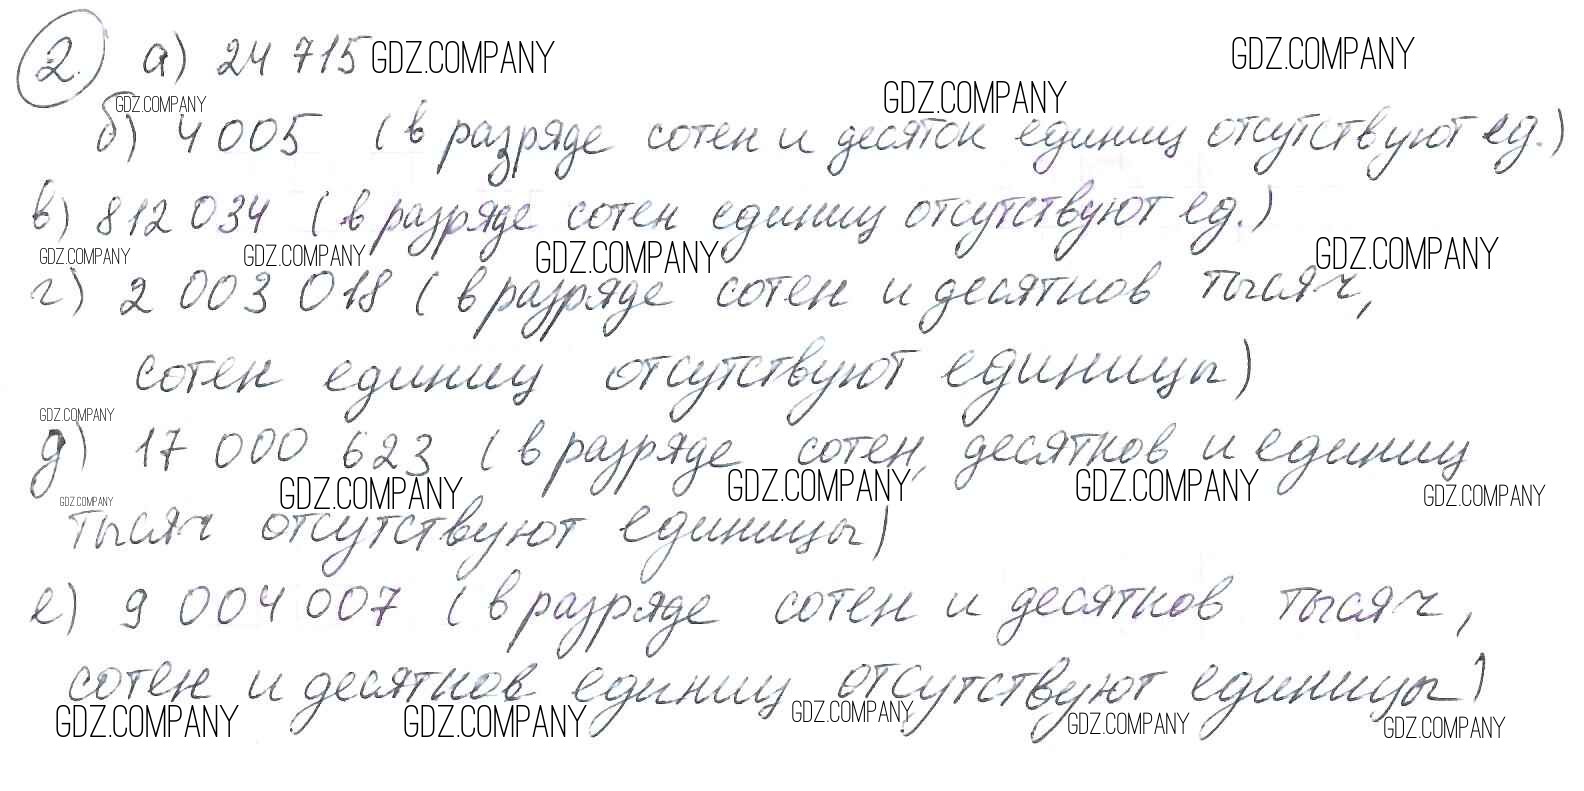 2. а) 24 715 GDZ.COMPANY GDZ.COMPANY
GDZ.COMPANY GDZ.COMPANY
б) 4 005 (в разряде сотен и десяток единиц отсутствуют ед.)
в) 812 034 (в разряде сотен единиц отсутствуют ед.)
GDZ.COMPANY GDZ.COMPANY GDZ.COMPANY GDZ.COMPANY
г) 2 003 018 (в разряде сотен и десятков тысяч,
сотен единиц отсутствуют единицы)
GDZ.COMPANY
д) 17 000 623 (в разряде сотен, десятков и единиц
GDZ.COMPANY GDZ.COMPANY GDZ.COMPANY GDZ.COMPANY GDZ.COMPANY
тысяч отсутствуют единицы)
е) 9 004 007 (в разряде сотен и десятков тысяч,
сотен и десятков единиц отсутствуют единицы)
GDZ.COMPANY GDZ.COMPANY GDZ.COMPANY GDZ.COMPANY GDZ.COMPANY